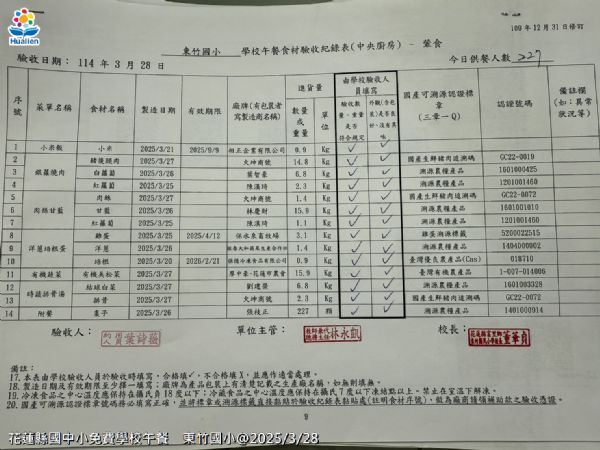 Hualien
109年12月31日修訂
東竹國小 學校午餐食材驗收紀錄表(中央廚房) - 葷食
驗收日期: 114 年 3 月 28 日 今日供餐人數 227
序號 菜單名稱 食材名稱 製造日期 有效期限 廠牌(有包裝者寫製造商名稱) 進貨量 數量或重量 單位 由學校驗收人員填寫 驗收數量、重量是否符合規定 外觀(含包裝)是否良好、沒有異味 國產可溯源認證標章(三章一Q) 認證號碼 備註欄(如:異常狀況等)
1 小米飯 小米 2025/3/21 2025/9/9 相正企業有限公司 0.9 Kg ✓ ✓
2 豬後腿肉 2025/3/27 大坤商號 14.8 Kg ✓ ✓ 國產生鮮豬肉追溯碼 GC22-0019
3 銀蘿燒肉 白蘿蔔 2025/3/26 葉智豪 6.8 Kg ✓ ✓ 溯源農糧產品 1601000425
4 紅蘿蔔 2025/3/25 陳漢琦 2.3 Kg ✓ ✓ 溯源農糧產品 1201001460
5 肉絲 2025/3/27 大坤商號 1.4 Kg ✓ ✓ 國產生鮮豬肉追溯碼 GC22-0072
6 肉絲甘藍 甘藍 2025/3/26 林慶財 15.9 Kg ✓ ✓ 溯源農糧產品 1601001010
7 紅蘿蔔 2025/3/25 陳漢琦 1.1 Kg ✓ ✓ 溯源農糧產品 1201001460
8 雞蛋 2025/3/25 2025/4/12 保永泉畜牧場 3.1 Kg ✓ ✓ 雞蛋溯源標籤 5200022515
9 洋蔥培根蛋 洋蔥 2025/3/26 1.4 Kg ✓ ✓ 溯源農糧產品 1404000002
10 培根 2025/3/20 2026/2/21 0.9 Kg ✓ ✓ 臺灣優良農產品(Cas) 018710
11 有機蔬菜 有機美松菜 2025/3/27 廖中豪-花蓮市農會 15.9 Kg ✓ ✓ 臺灣有機農產品 1-007-014006
12 結頭白菜 2025/3/27 劉建榮 6.8 Kg ✓ ✓ 溯源農糧產品 1601003328
13 時蔬排骨湯 排骨 2025/3/27 大坤商號 2.3 Kg ✓ ✓ 國產生鮮豬肉追溯碼 GC22-0072
14 附餐 棗子 2025/3/26 張枝正 227 顆 ✓ ✓ 溯源農糧產品 1401000914
驗收人: 單位主管: 林永凱 校長: 董華貞
備註:
17.本表由學校驗收人員於驗收時填寫,合格填✓,不合格填X,並應作適當處理。
18.製造日期及有效期限至少擇一填寫;廠牌為產品包裝上有清楚記載之生產廠名稱,如無則填無。
19.冷凍食品之中心溫度應保持在攝氏負18度以下;冷藏食品之中心溫度應保持在攝氏7度以下凍結點以上。禁止在室溫下解凍。
20.國產可溯源認證標章號碼務必填寫正確,並將標章或溯源標籤直接黏貼於驗收紀錄表黏貼處(註明食材序號),做為廠商請領補助款之驗收憑證。
9
花蓮縣國中小免費學校午餐 東竹國小@2025/3/28